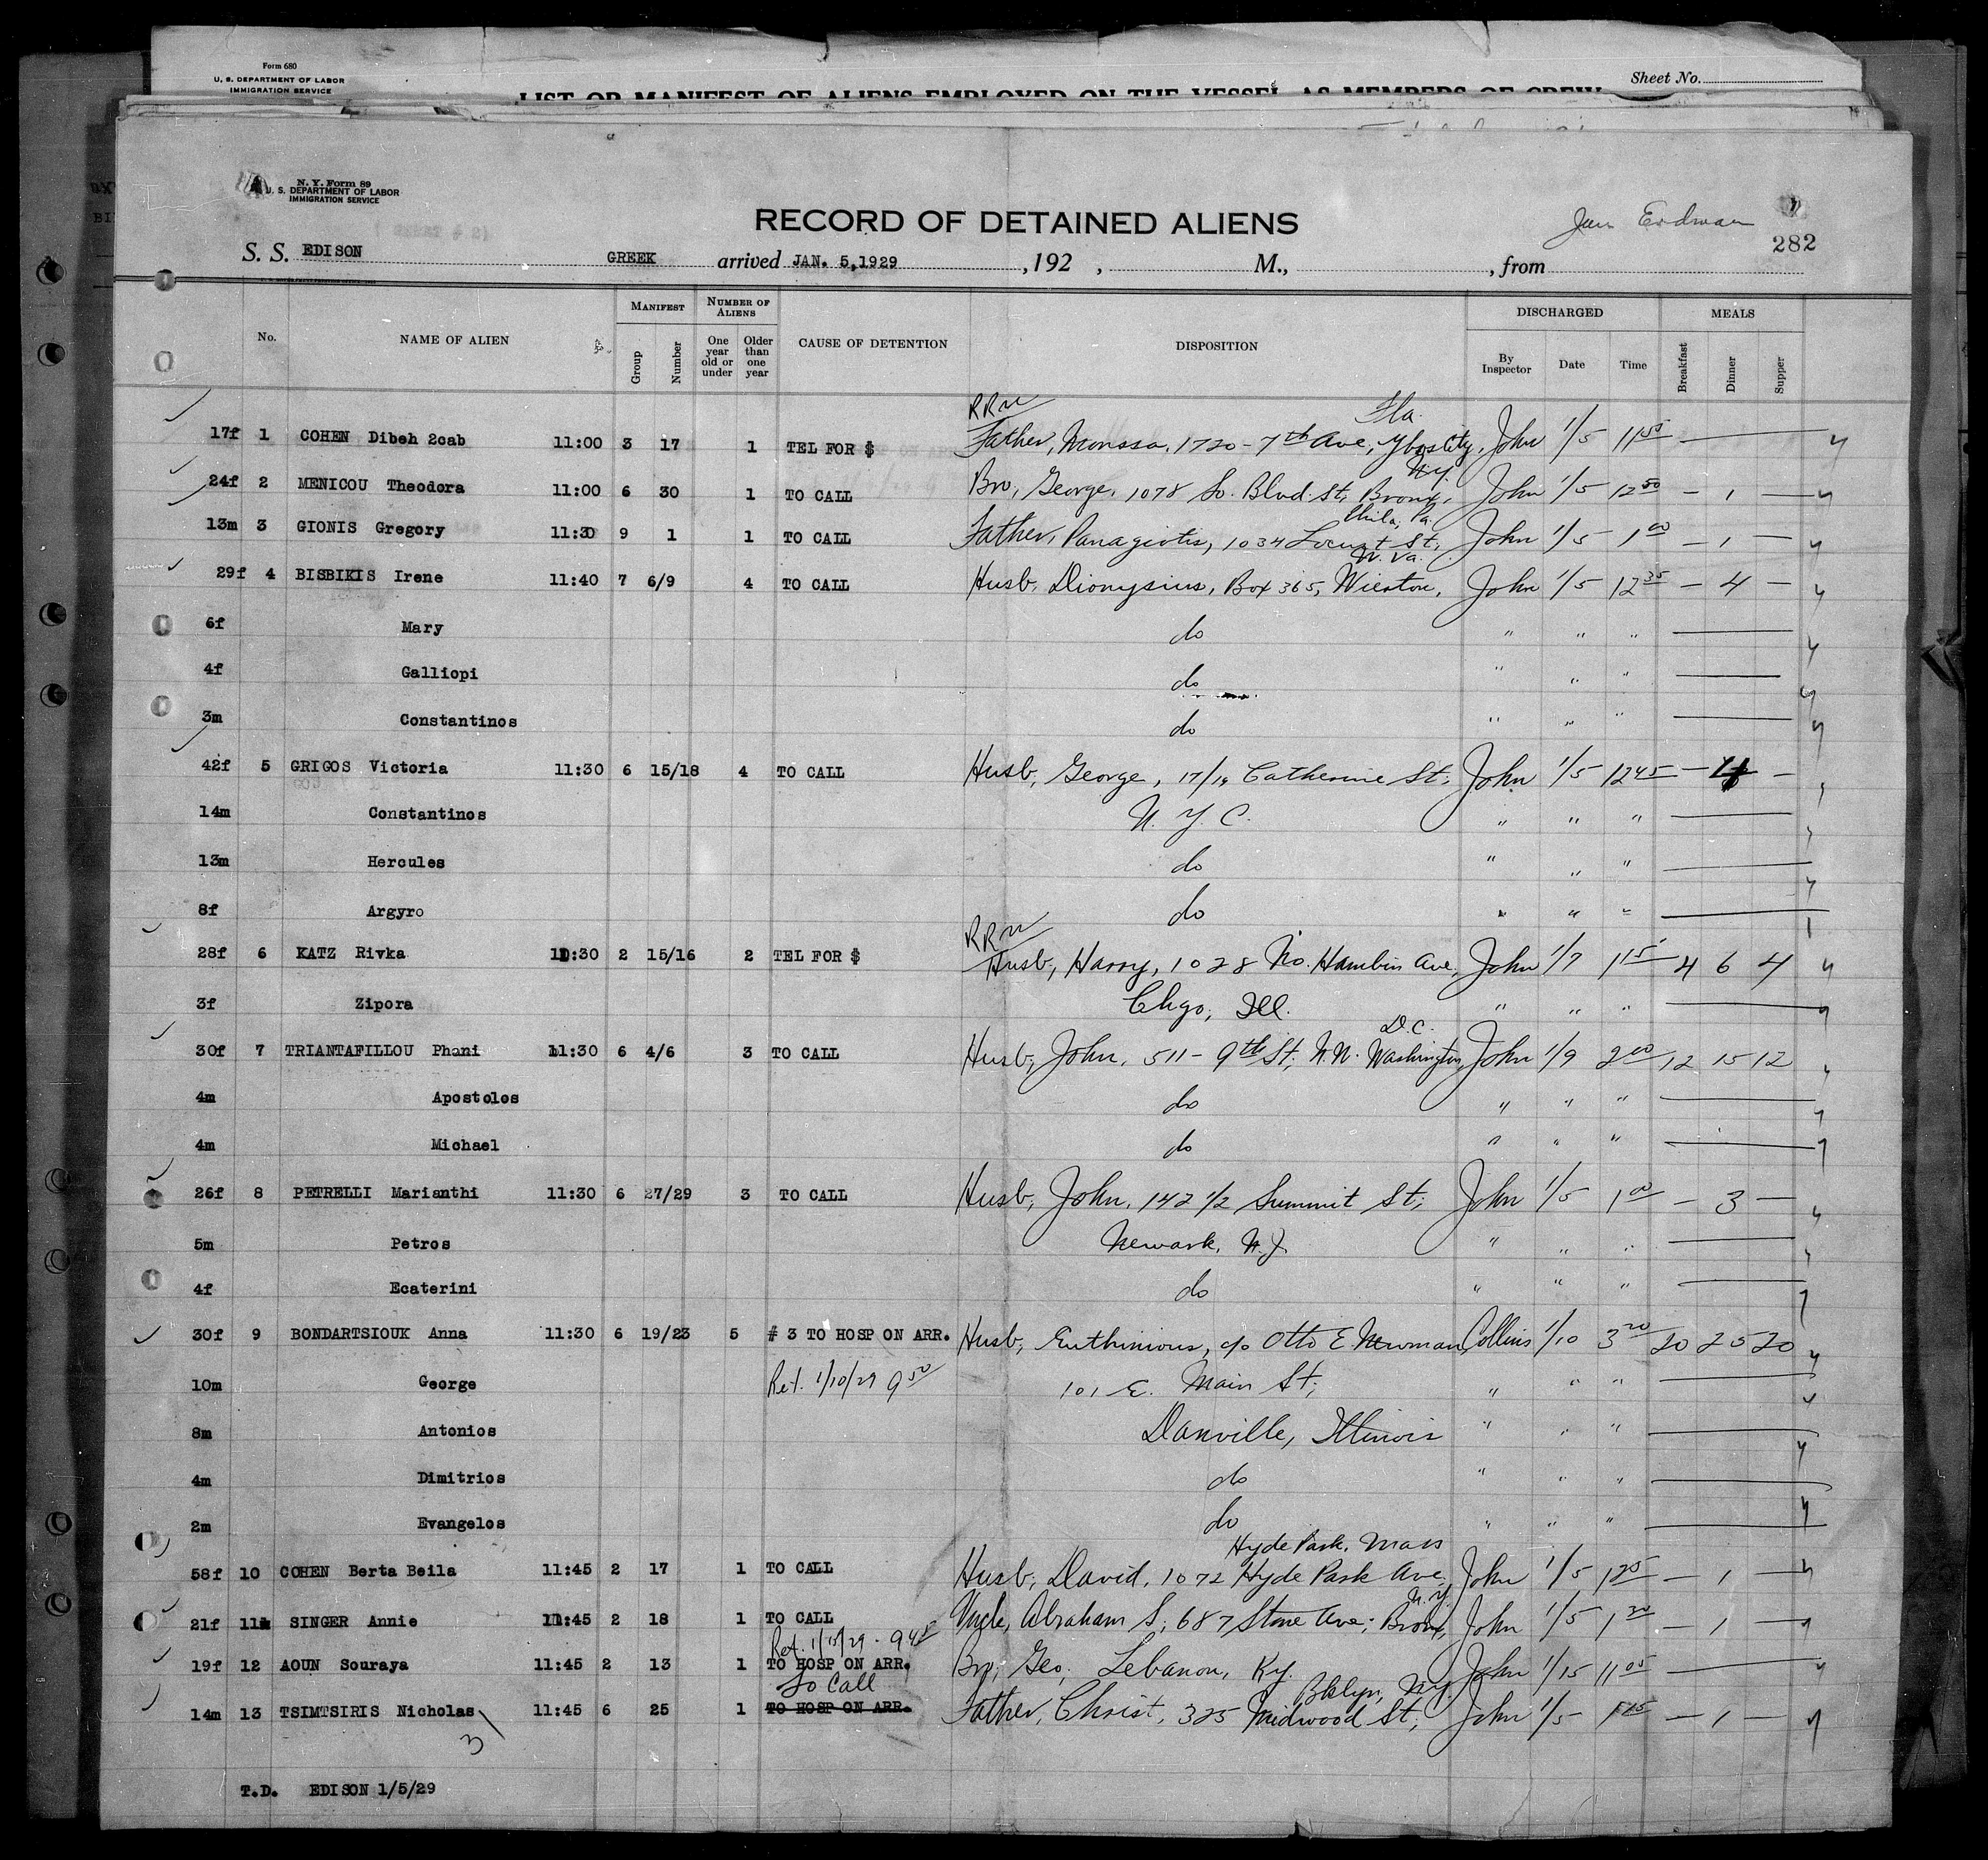 Form 680
U. S. DEPARTMENT OF LABOR
IMMIGRATION SERVICE
Sheet No.
LIST OR MANIFEST OF ALIENS EMPLOYED ON THE VESSEL AS MEMBERS OF CREW
N. Y. Form 89
U. S. DEPARTMENT OF LABOR
IMMIGRATION SERVICE
RECORD OF DETAINED ALIENS
Erdman
282
S. S. EDISON GREEK arrived JAN. 5,1929 , 192 , M., , from
No. NAME OF ALIEN MANIFEST Group Number NUMBER OF ALIENS One year old or under Older than one year CAUSE OF DETENTION DISPOSITION DISCHARGED By Inspector Date Time MEALS Breakfast Dinner Supper
Fla.
17f 1 COHEN Dibeh 2cab 11:00 3 17 1 TEL FOR $ Father, Moussa, 1720 - 7th Ave, Ybor City, John 1/5 11 50
N.Y.
24f 2 MENICOU Theodora 11:00 6 30 1 TO CALL Bro, George, 1078 So. Blvd. St, Bronx, John 1/5 12 50 - 1 -
Phila, Pa.
13m 3 GIONIS Gregory 11:30 9 1 1 TO CALL Father, Panagiotis, 1034 Locust St, John 1/5 1 00 - 1 -
W. Va.
29f 4 BISBIKIS Irene 11:40 7 6/9 4 TO CALL Husb, Dionysius, Box 365, John 1/5 12 35 - 4 -
6f Mary do " " "
4f Galliopi do " " "
3m Constantinos do " " "
42f 5 GRIGOS Victoria 11:30 6 15/18 4 TO CALL Husb, George, 17/19 Catherine St, John 1/5 12 45 - 4 -
14m Constantinos N. Y. C. " " "
13m Hercules do " " "
8f Argyro do " " "
28f 6 KATZ Rivka 11:30 2 15/16 2 TEL FOR $ Husb, Harry, 1028 No. Ave, John 1/7 1 15 4 6 4
3f Zipora Chgo, Ill. " " "
D.C.
30f 7 TRIANTAFILLOU Phani 11:30 6 4/6 3 TO CALL Husb, John, 511 - 9th St, N.W. Washington, John 1/9 2 00 12 15 12
4m Apostolos do " " "
4m Michael do " " "
26f 8 PETRELLI Marianthi 11:30 6 27/29 3 TO CALL Husb, John, 142 1/2 Summit St; John 1/5 1 00 - 3 -
5m Petros Newark, N.J. " " "
4f Ecaterini do " " "
30f 9 BONDARTSIOUK Anna 11:30 6 19/23 5 # 3 TO HOSP ON ARR. Husb, c/o Otto E. Newman, Collins 1/10 3 20 20 25 20
10m George Ret. 1/10/29 9 50 101 E. Main St; " " "
8m Antonios Danville, Illinois " " "
4m Dimitrios do " " "
2m Evangelos do " " "
Hyde Park, Mass
58f 10 COHEN Berta Beila 11:45 2 17 1 TO CALL Husb, David, 1072 Hyde Park Ave, John 1/5 1 25 - 1 -
N.Y.
21f 11 SINGER Annie 11:45 2 18 1 TO CALL Uncle, Abraham S, 687 Stone Ave; Bronx, John 1/5 1 30 - 1 -
Ret. 1/15/29 - 9 45
19f 12 AOUN Souraya 11:45 2 13 1 TO HOSP ON ARR. Bro, Geo, Lebanon, Ky. John 1/15 11 05
To Call Bklyn, N.Y.
14m 13 TSIMTSIRIS Nicholas 11:45 6 25 1 TO HOSP ON ARR. Father, Christ, 325 Midwood St, John 1/5 1 15 - 1 -
3
T.D. EDISON 1/5/29